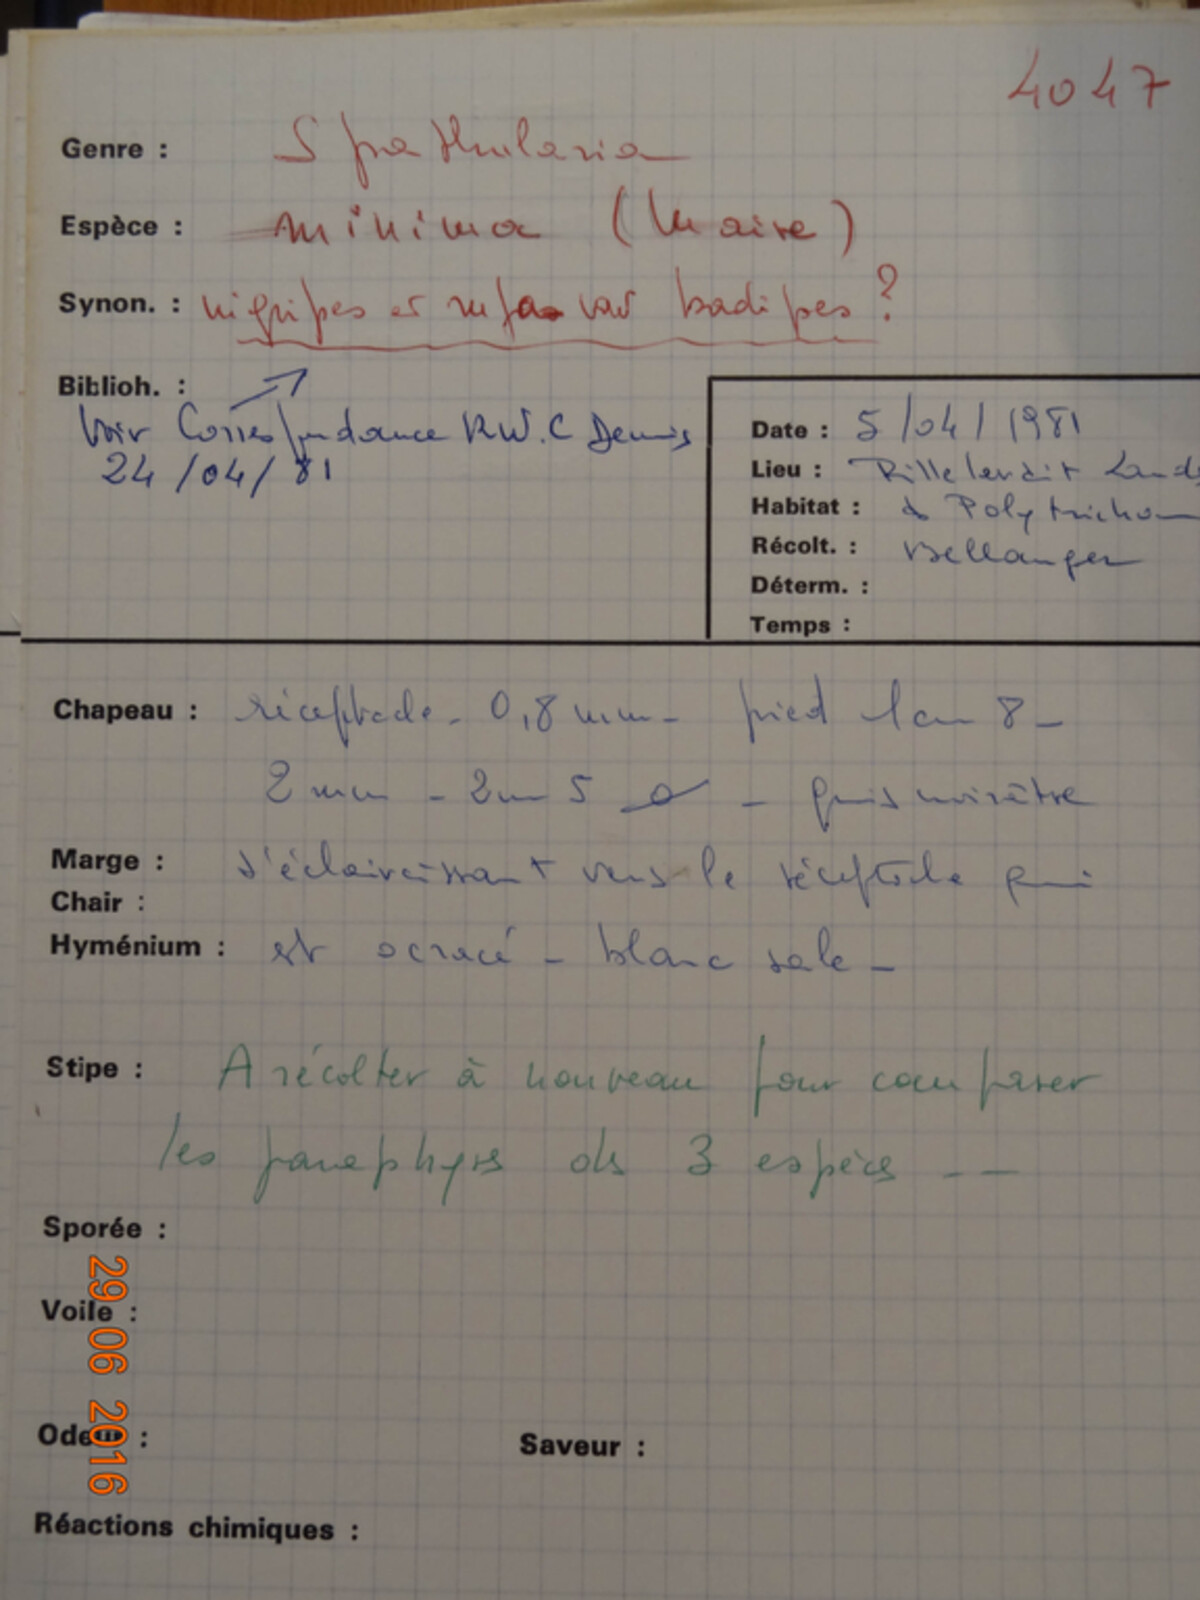 4047
Genre : Spathularia
Espèce : minima (Maire)
Synon. : nigripes et rufa var badipes ?
Biblioh. :
Voir Correspondance R.W.C Dennis
24/04/81
Date : 5/04/1981
Lieu : Rillé
Habitat : ds Polytrichum
Récolt. : Bellanger
Déterm. :
Temps :
Chapeau : réceptacle - 0,8 mm - pied 1cm 8 -
2 mm - 2cm 5 - gris noirâtre
Marge : s'éclaircissant vers le réceptacle qui
Chair :
Hyménium : est ocracé - blanc sale -
Stipe : A récolter à nouveau pour comparer
les paraphyses des 3 espèces --
Sporée :
Voile :
Odeur : Saveur :
Réactions chimiques :
29 06 2016